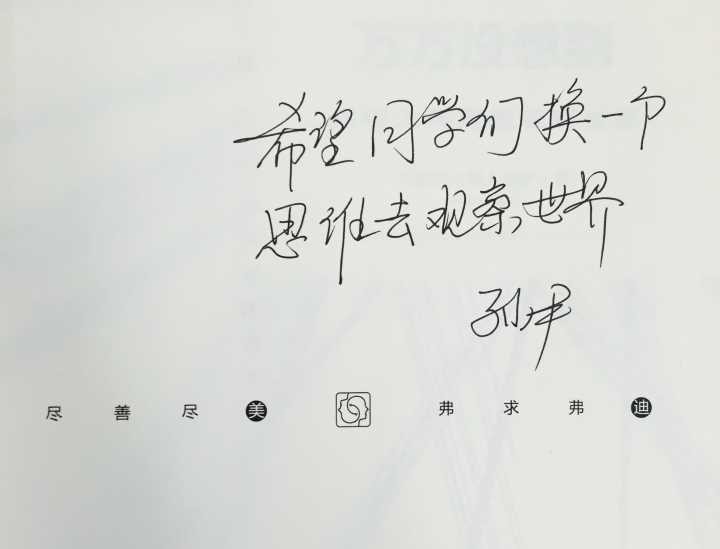 希望同学们换一个
思维去观察世界
尽善尽美 弗求弗迪